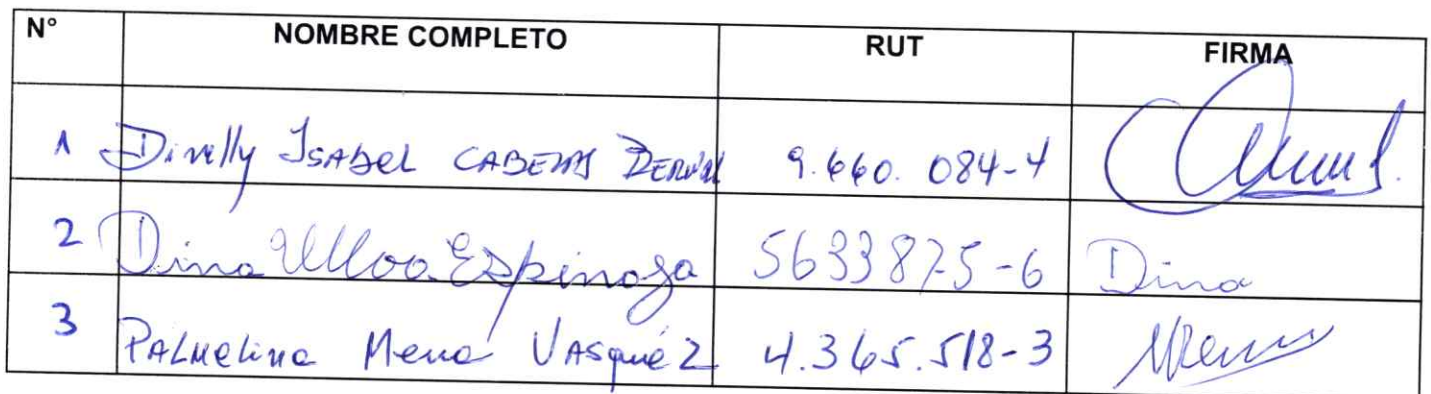 N° NOMBRE COMPLETO RUT FIRMA
1 Direlly ISABEL CABEZAS 9.660.084-4
2 Dina Ulloa Espinoza 5633875-6 Dina
3 PALMelina Mena VASquéz 4.365.518-3 Mena